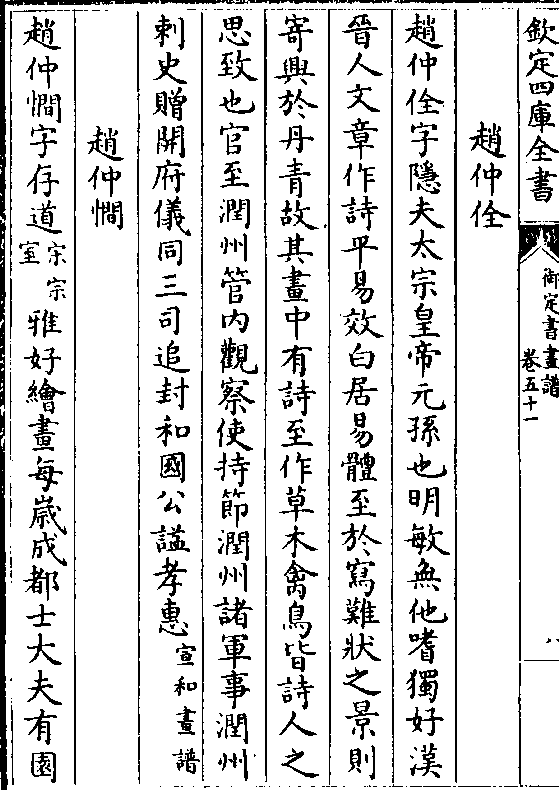 欽定四庫全書
御定書畫譜
卷五十一
八
趙仲佺
趙仲佺字隱夫太宗皇帝元孫也明敏無他嗜獨好漢
晉人文章作詩平易效白居易體至於寫難狀之景則
寄興於丹青故其畫中有詩至作草木禽鳥皆詩人之
思致也官至潤州管内觀察使持節潤州諸軍事潤州
刺史贈開府儀同三司追封和國公謚孝惠宣和畫譜
趙仲㦗
趙仲㦗字存道宋宗室雅好繪畫每嵗成都士大夫有園